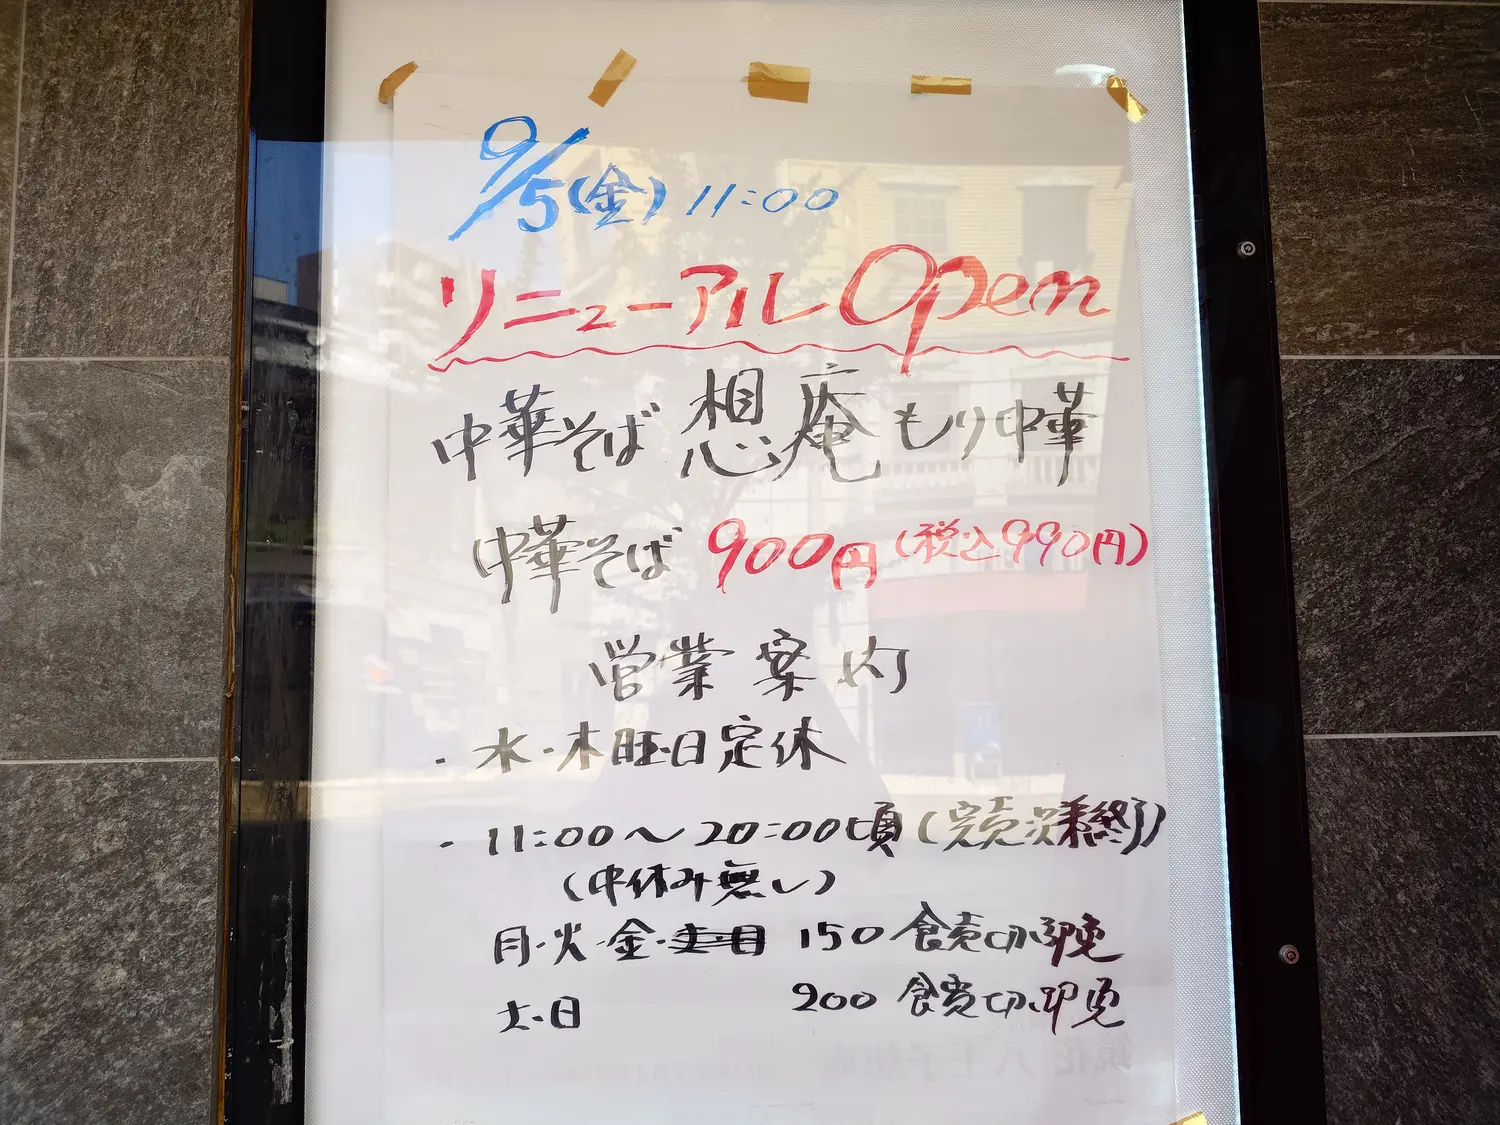 9/5(金) 11:00
リニューアルOpen
中華そば 想庵 もり中華
中華そば 900円 (税込990円)
営業案内
・水・木曜日定休
・11:00〜20:00頃 (完売次第終了)
(中休み無し)
月・火・金・ 150食売切御免
土・日 200食売切御免